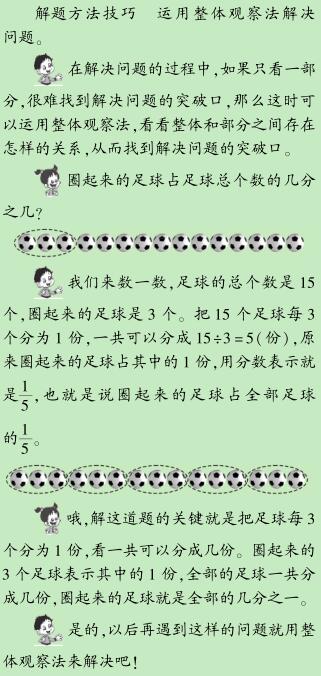 解题方法技巧　运用整体观察法解决
问题。
在解决问题的过程中,如果只看一部
分,很难找到解决问题的突破口,那么这时可
以运用整体观察法,看看整体和部分之间存在
怎样的关系,从而找到解决问题的突破口。
圈起来的足球占足球总个数的几分
之几?
我们来数一数,足球的总个数是 15
个,圈起来的足球是 3 个。把 15 个足球每 3
个分为 1 份,一共可以分成 15÷3=5(份),原
来圈起来的足球占其中的 1 份,用分数表示就
是1/5,也就是说圈起来的足球占全部足球
的1/5。
哦,解这道题的关键就是把足球每 3
个分为 1 份,看一共可以分成几份。圈起来的
3 个足球表示其中的 1 份,全部的足球一共分
成几份,圈起来的足球就是全部的几分之一。
是的,以后再遇到这样的问题就用整
体观察法来解决吧!